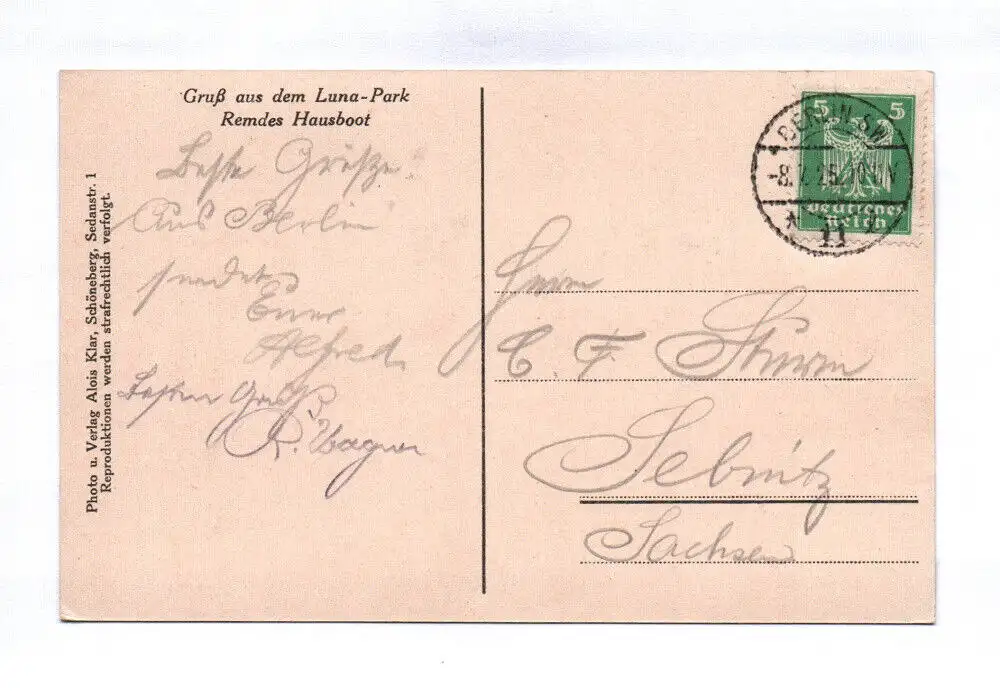 Gruß aus dem Luna-Park
Remdes Hausboot
Beste Grüße
Aus Berlin
sendet
Euer
Alfred
Besten Gruß
R. Wagner
Photo u. Verlag Alois Klar, Schöneberg, Sedanstr. 1
Reproduktionen werden strafrechtlich verfolgt.
5 5
Deutsches
Reich
BERLIN SW
11
Herrn
C F Sturm
Sebnitz
Sachsen